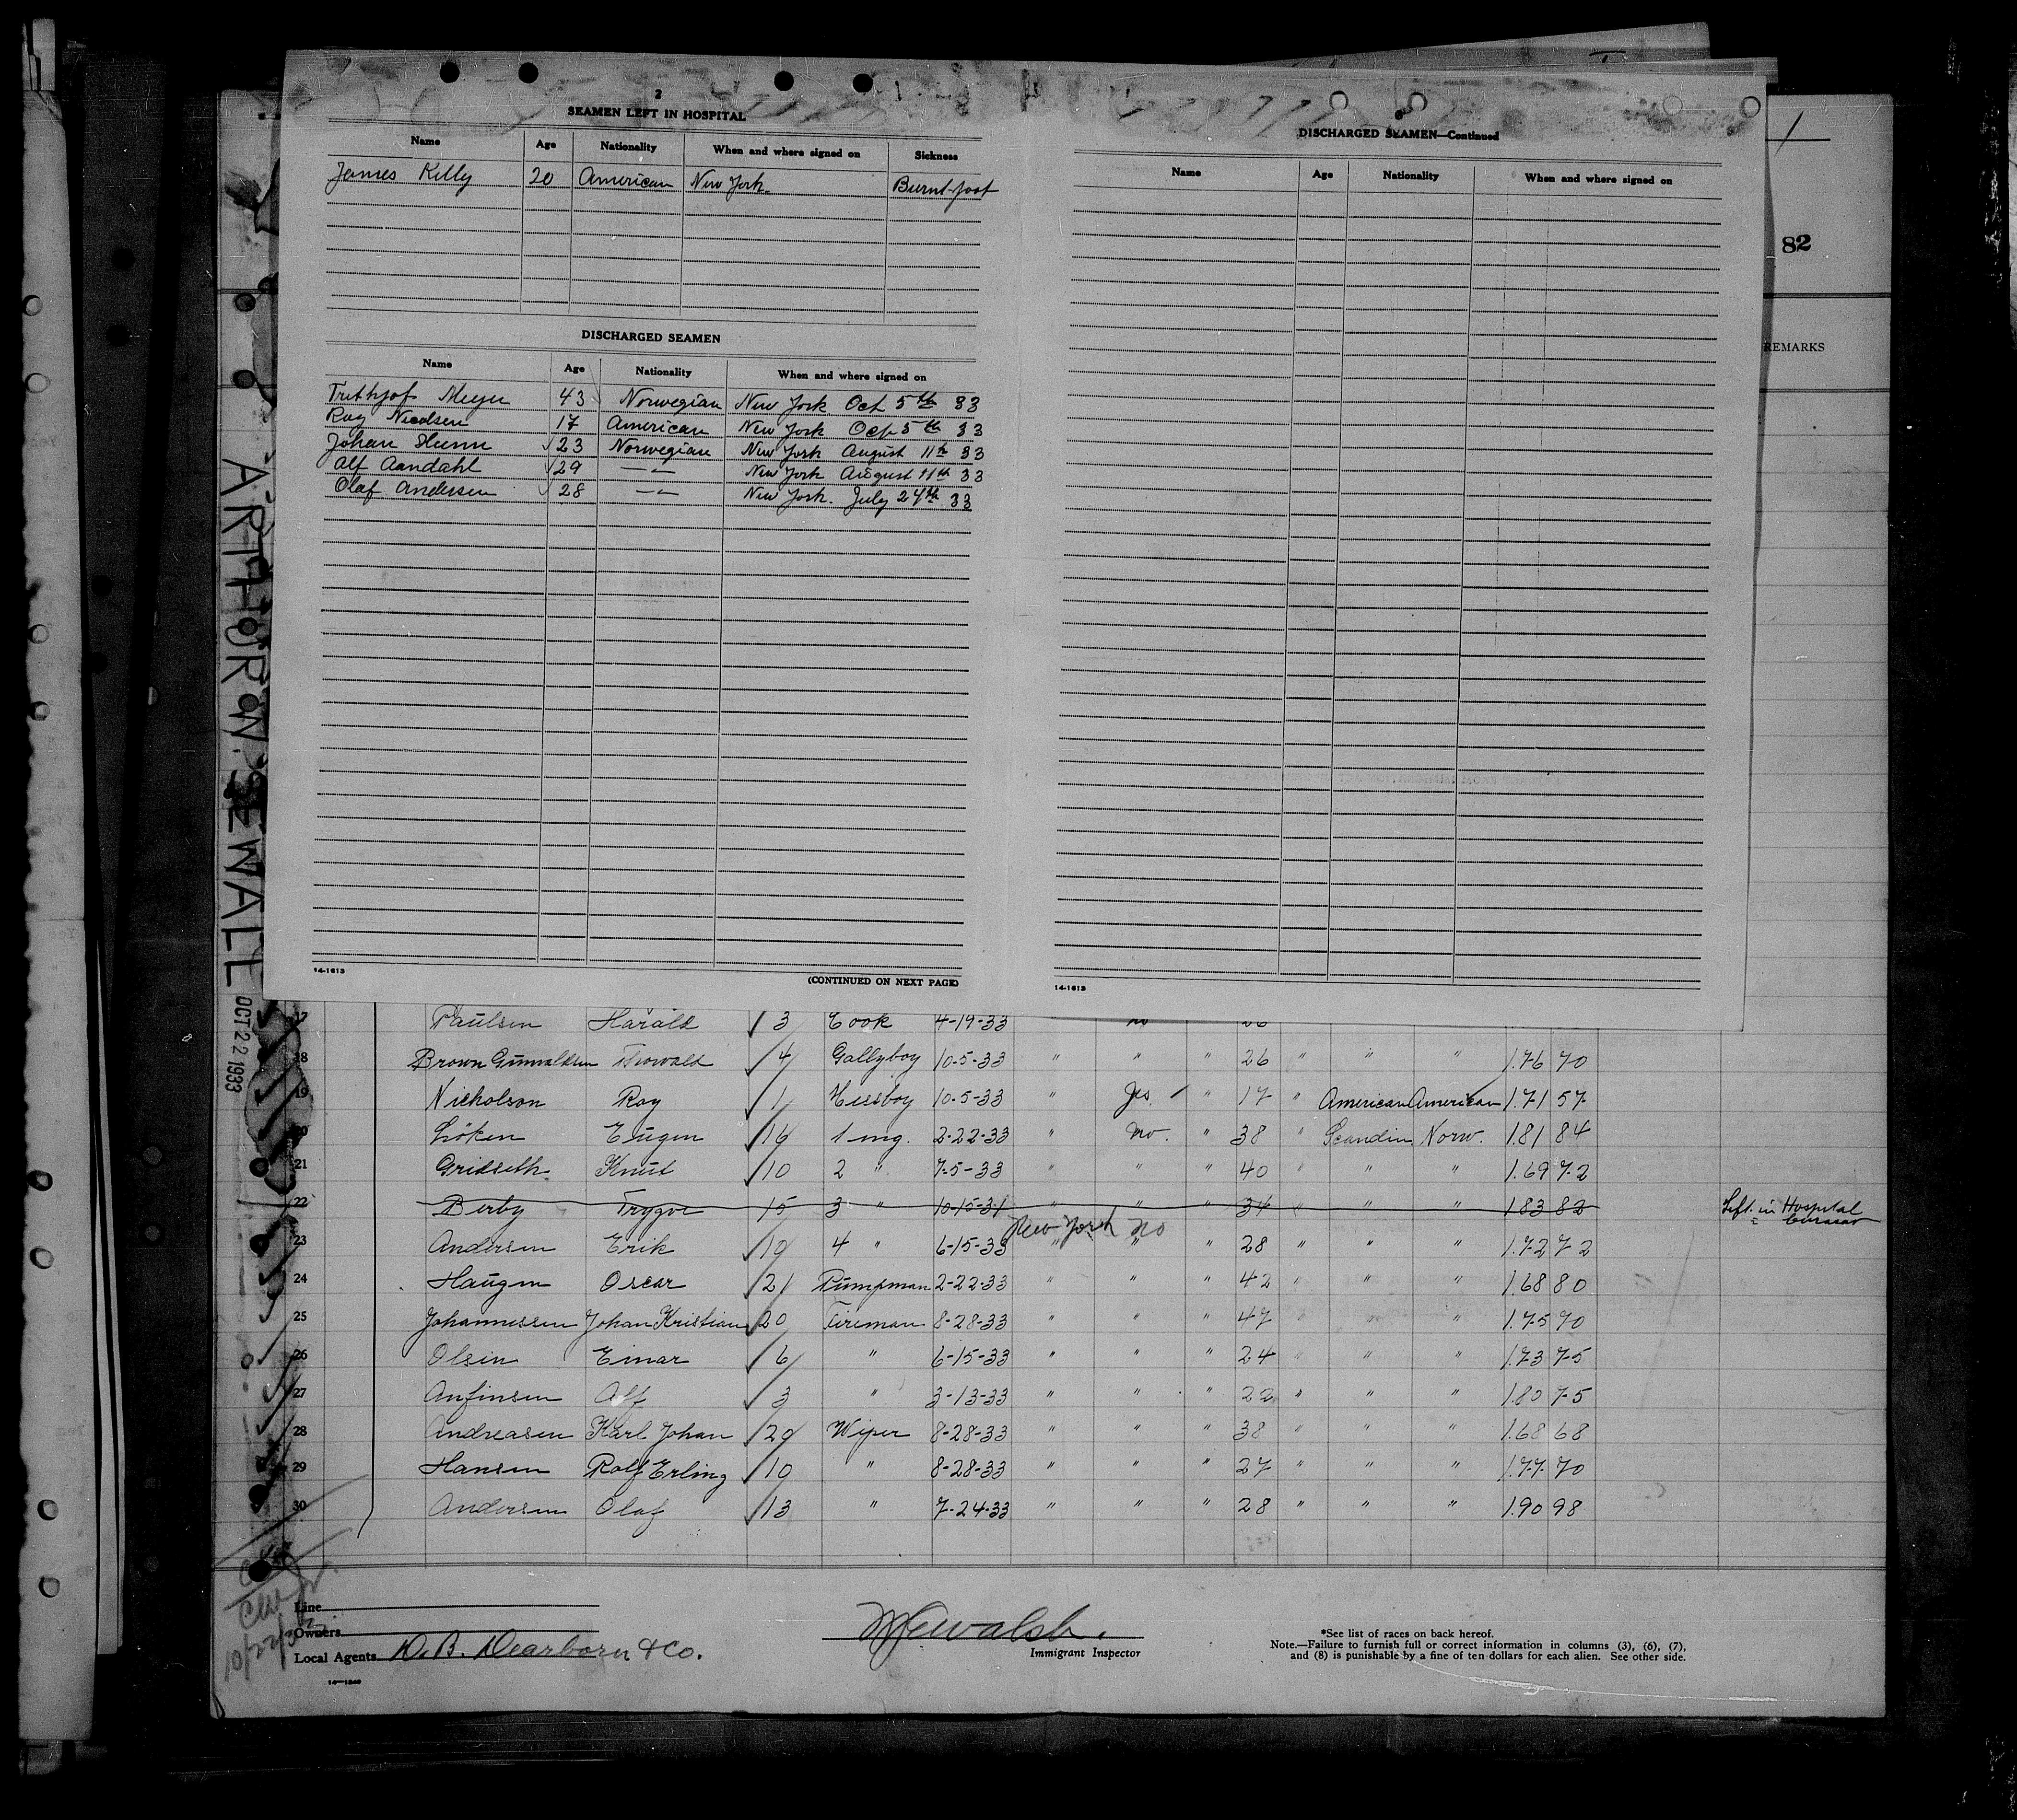 2
SEAMEN LEFT IN HOSPITAL
Name Age Nationality When and where signed on Sickness
James Kelly 20 American New York. Burnt foot
DISCHARGED SEAMEN
Name Age Nationality When and where signed on
Meyer 43 Norwegian New York Oct 5th 33
Roy 17 American New York Oct 5th 33
Johan 23 Norwegian New York August 11th 33
Alf Aandahl 29 —"— New York August 11th 33
Olaf Andersen 28 —"— New York. July 24th 33
14-1613
(CONTINUED ON NEXT PAGE)
DISCHARGED SEAMEN—Continued
Name Age Nationality When and where signed on
14-1613
1
82
REMARKS
ARTHUR SEWALL
OCT 22 1933
17 Paulsen Harald 3 Cook 4-19-33 no 26
18 Brown Gunvaldsen 4 Galleyboy 10-5-33 " " " 26 " " " 1.76 70
19 Nicholson Roy 1 Messboy 10-5-33 " Yes " 17 " American American 1.71 57
20 Löken Eugen 16 1 eng. 2-22-33 " no. " 38 " Scandin Norw. 1.81 84
21 Gridseth Knut 10 2 " 7-5-33 " " " 40 " " " 1.69 72
22 Berby Trygve 15 3 " 10-15-31 " " " 34 " " " 1.83 82 Left in Hospital Curacao
New York no
23 Andersen Erik 10 4 " 6-15-33 " " " 28 " " " 1.72 72
24 Haugen Oscar 21 Pumpman 2-22-33 " " " 42 " " " 1.68 80
25 Johannessen Johan Kristian 20 Fireman 8-28-33 " " " 47 " " " 1.75 70
26 Olsen Einar 6 " 6-15-33 " " " 24 " " " 1.73 75
27 Anfinsen Alf 3 " 3-13-33 " " " 22 " " " 1.80 75
28 Andreasen Karl Johan 20 Wiper 8-28-33 " " " 38 " " " 1.68 68
29 Hansen Rolf Erling 10 " 8-28-33 " " " 27 " " " 1.77 70
30 Andersen Olaf 13 " 7-24-33 " " " 28 " " " 1.90 98
Line
Owners
Local Agents D. B. Dearborn & Co.
14—1240
10/22/33
Walsh.
Immigrant Inspector
*See list of races on back hereof.
Note.—Failure to furnish full or correct information in columns (3), (6), (7),
and (8) is punishable by a fine of ten dollars for each alien. See other side.